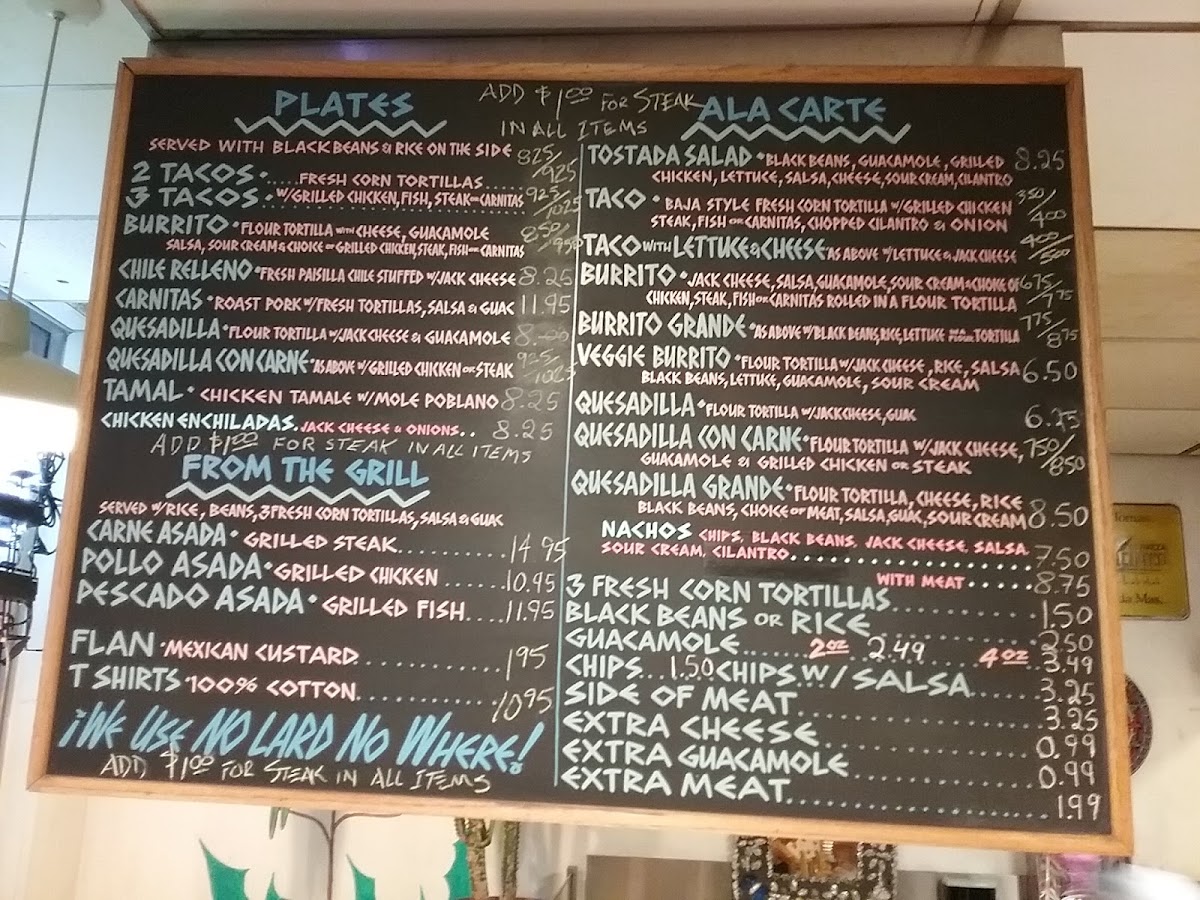 ADD $1.00 FOR STEAK
IN ALL ITEMS
PLATES
SERVED WITH BLACK BEANS & RICE ON THE SIDE
2 TACOS......FRESH CORN TORTILLAS...... 825/925
3 TACOS • W/GRILLED CHICKEN, FISH, STEAK OR CARNITAS 925/1025
BURRITO • FLOUR TORTILLA WITH CHEESE, GUACAMOLE 850/950
SALSA, SOUR CREAM & CHOICE OF GRILLED CHICKEN, STEAK, FISH OR CARNITAS
CHILE RELLENO • FRESH PAISILLA CHILE STUFFED W/JACK CHEESE 8.25
CARNITAS • ROAST PORK W/FRESH TORTILLAS, SALSA & GUAC 11.95
QUESADILLA • FLOUR TORTILLA W/JACK CHEESE & GUACAMOLE 8.00
QUESADILLA CON CARNE • AS ABOVE W/GRILLED CHICKEN OR STEAK 925/1025
TAMAL • CHICKEN TAMALE W/MOLE POBLANO 8.25
CHICKEN ENCHILADAS. JACK CHEESE & ONIONS.. 8.25
ADD $1.00 FOR STEAK IN ALL ITEMS
FROM THE GRILL
SERVED W/RICE, BEANS, 3 FRESH CORN TORTILLAS, SALSA & GUAC
CARNE ASADA • GRILLED STEAK............ 14.95
POLLO ASADA • GRILLED CHICKEN .....10.95
PESCADO ASADA • GRILLED FISH....11.95
FLAN • MEXICAN CUSTARD............ 195
T SHIRTS • 100% COTTON............ 1095
¡WE USE NO LARD NO WHERE!
ADD $1.00 FOR STEAK IN ALL ITEMS
ALA CARTE
TOSTADA SALAD • BLACK BEANS, GUACAMOLE, GRILLED 8.25
CHICKEN, LETTUCE, SALSA, CHEESE, SOUR CREAM, CILANTRO
TACO • BAJA STYLE FRESH CORN TORTILLA W/GRILLED CHICKEN 350/400
STEAK, FISH OR CARNITAS, CHOPPED CILANTRO & ONION
TACO WITH LETTUCE & CHEESE AS ABOVE W/LETTUCE & JACK CHEESE 400/500
BURRITO • JACK CHEESE, SALSA, GUACAMOLE, SOUR CREAM & CHOICE OF 675/775
CHICKEN, STEAK, FISH OR CARNITAS ROLLED IN A FLOUR TORTILLA
BURRITO GRANDE • AS ABOVE W/BLACK BEANS, RICE, LETTUCE FLOUR TORTILLA 775/875
VEGGIE BURRITO • FLOUR TORTILLA W/JACK CHEESE, RICE, SALSA 6.50
BLACK BEANS, LETTUCE, GUACAMOLE, SOUR CREAM
QUESADILLA • FLOUR TORTILLA W/JACK CHEESE, GUAC 6.25
QUESADILLA CON CARNE • FLOUR TORTILLA W/JACK CHEESE, 750/850
GUACAMOLE & GRILLED CHICKEN OR STEAK
QUESADILLA GRANDE • FLOUR TORTILLA, CHEESE, RICE
BLACK BEANS, CHOICE OF MEAT, SALSA, GUAC, SOUR CREAM 8.50
NACHOS CHIPS, BLACK BEANS, JACK CHEESE, SALSA,
SOUR CREAM, CILANTRO.................... 7.50
WITH MEAT..... 8.75
3 FRESH CORN TORTILLAS............ 1.50
BLACK BEANS OR RICE............ 2.50
GUACAMOLE...... 2oz 2.49 4oz 3.49
CHIPS... 1.50 CHIPS W/ SALSA...... 3.25
SIDE OF MEAT............ 3.25
EXTRA CHEESE............ 0.99
EXTRA GUACAMOLE............ 0.99
EXTRA MEAT............ 1.99